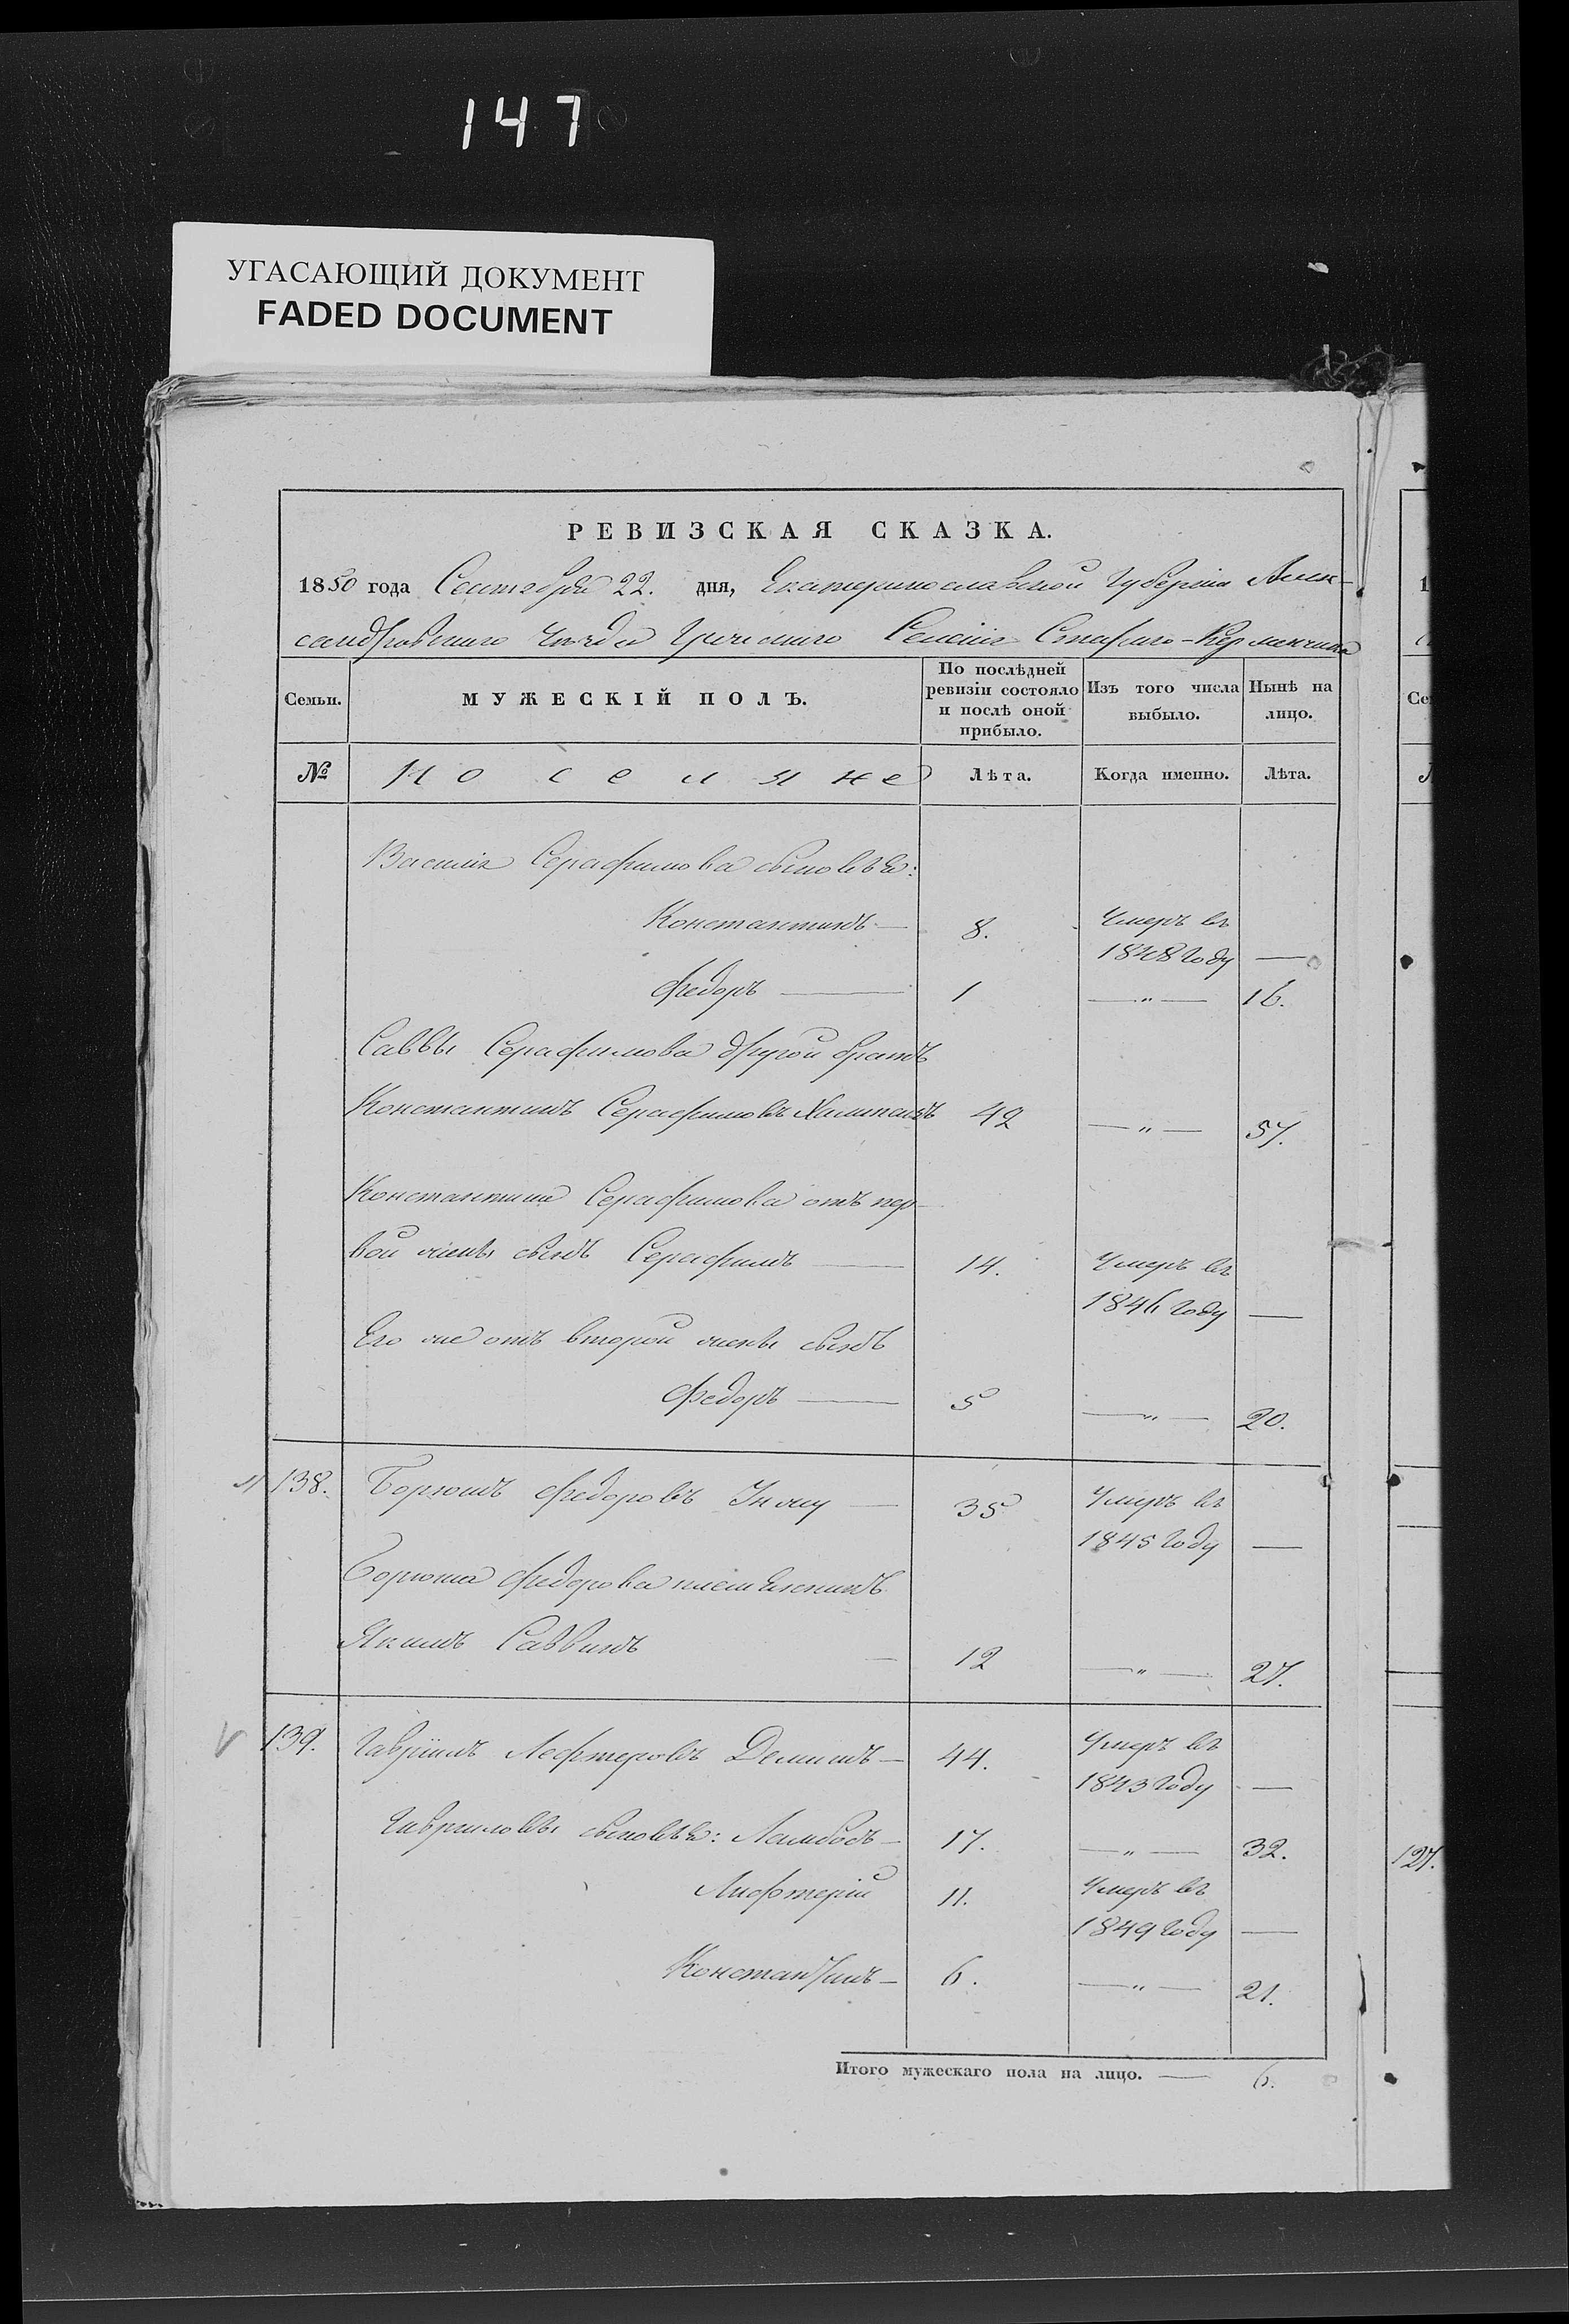 147
УГАСАЮЩИЙ ДОКУМЕНТ
FADED DOCUMENT
РЕВИЗСКАЯ СКАЗКА.
1850 года Сентября 22. дня, Екатеринославской Губерніи Алек-
сандровскаго Уѣзда Греческаго Селенія Стараго-Керменчика
Семьи.
МУЖЕСКІЙ ПОЛЪ.
По послѣдней
ревизіи состояло
и послѣ оной
прибыло.
Изъ того числа
выбыло.
Нынѣ на
лицо.
№
Поселяне
Лѣта.
Когда именно.
Лѣта.
Василія Серафимова сыновья:
Константинъ — 8. Умеръ въ
1848 году —
Федоръ — 1 — " — 16.
Саввы Серафимова другой братъ
Константинъ Серафимовъ 42 — " — 57.
Константина Серафимова отъ пер-
вой жены сынъ Серафимъ — 14. Умеръ въ
1846 году —
Его же отъ второй жены сынъ
Федоръ — 5 — " — 20.
138. Борюшъ Федоровъ — 35 Умеръ въ
1845 году —
Борюша Федорова племянникъ
Якимъ Саввинъ — 12 — " — 27.
139. Гаврiилъ Лефтеровъ — 44. Умеръ въ
1843 году —
Гавриловы сыновья: Ламбосъ — 17. — " — 32.
Лифтерій 11. Умеръ въ
1849 году —
Константинъ — 6. — " — 21.
127.
Итого мужескаго пола на лицо. — 6.